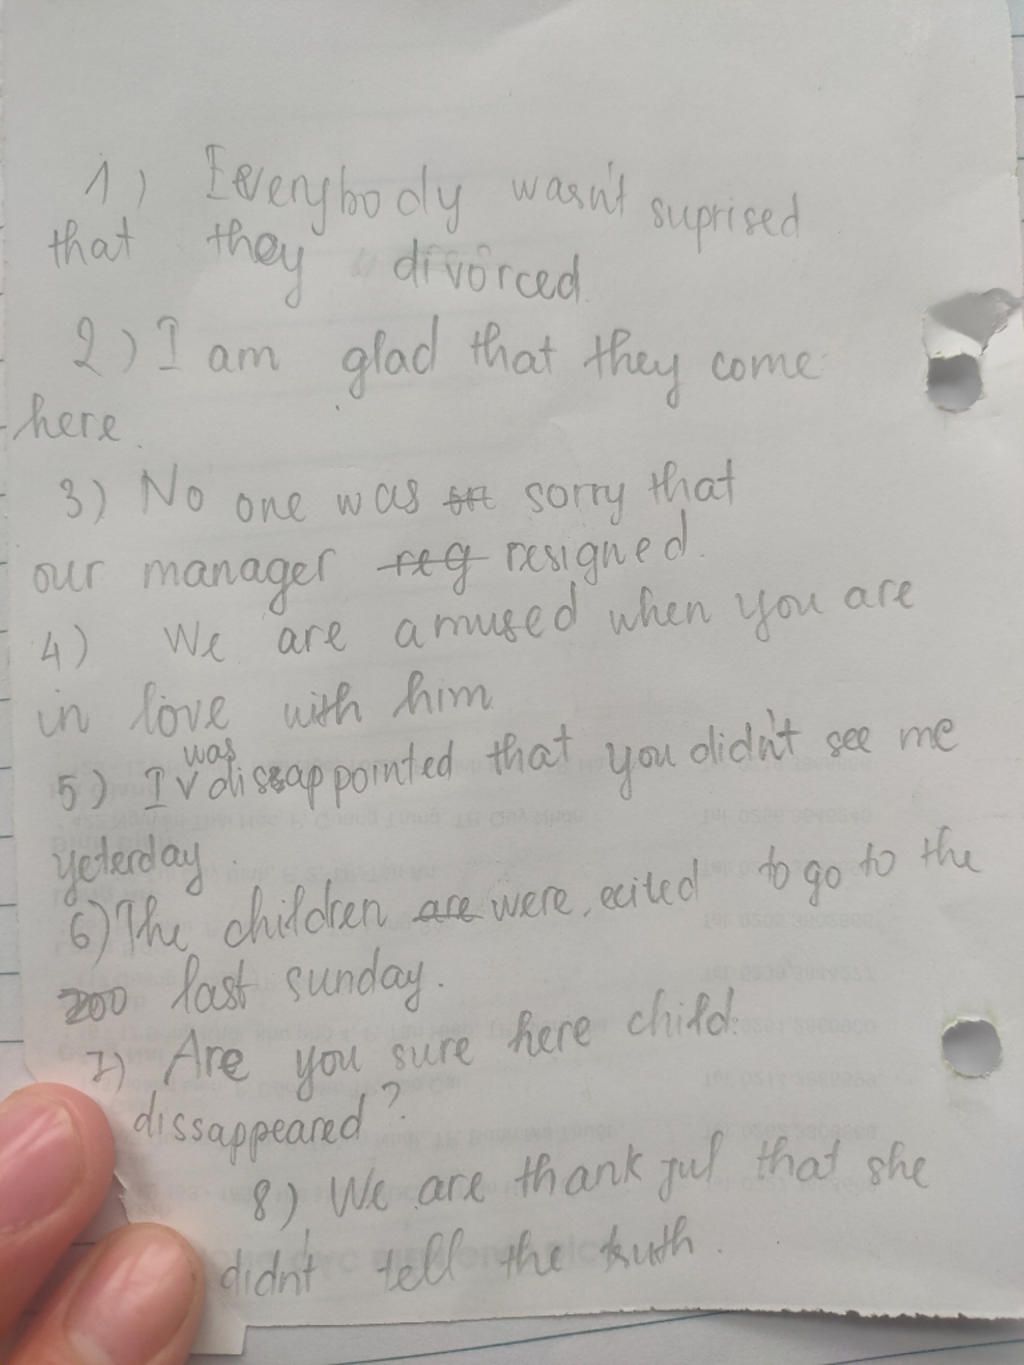 1) Everybody wasn't suprised
that they divorced.
2) I am glad that they come
here.
3) No one was sorry that
our manager resigned.
4) We are amused when you are
in love with him
was
5) I v dissappointed that you didn't see me
yeterday.
6) The children are were, ecited to go to the
zoo last sunday.
7) Are you sure here child
dissappeared?
8) We are thankful that she
didn't tell the truth.